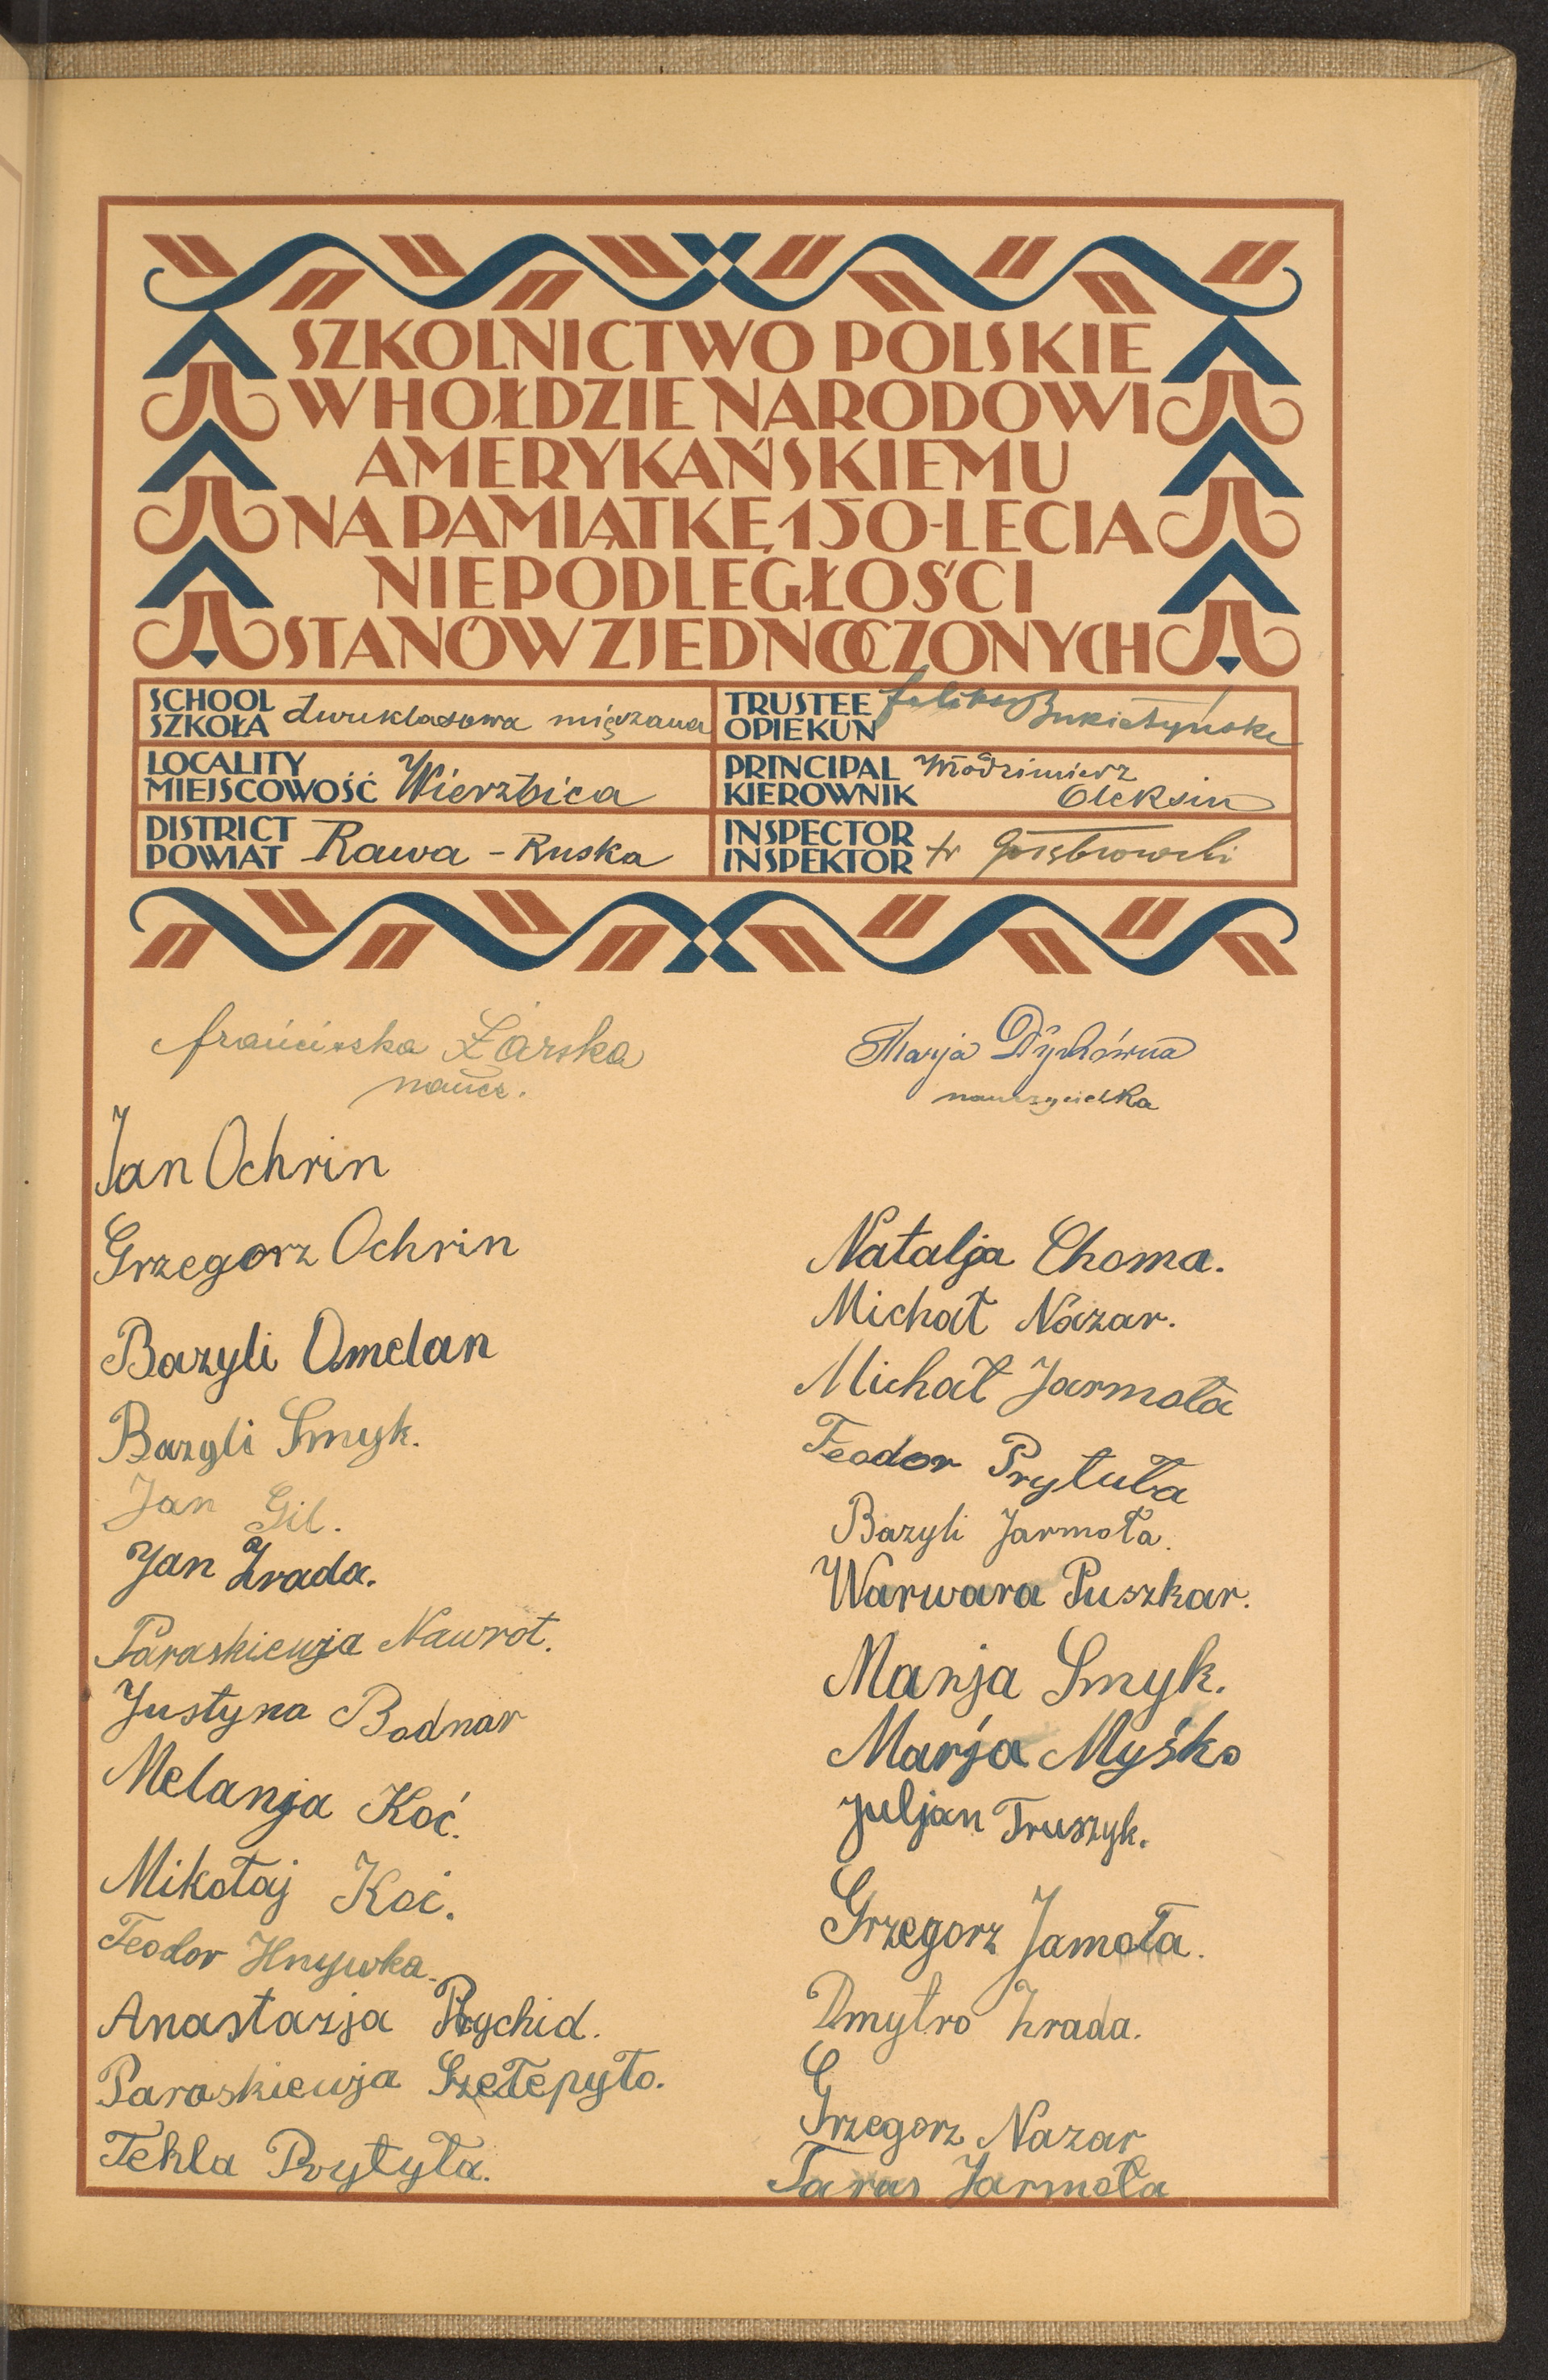 SZKOLNICTWO POLSKIE
W HOŁDZIE NARODOWI
AMERYKAŃSKIEMU
NA PAMIĄTKĘ 150-LECIA
NIEPODLEGŁOŚCI
STANÓW ZJEDNOCZONYCH
SCHOOL
SZKOŁA dwuklasowa mięszana
LOCALITY
MIEJSCOWOŚĆ Wierzbica
DISTRICT
POWIAT Rawa - Ruska
TRUSTEE
OPIEKUN
PRINCIPAL Włodzimierz
KIEROWNIK Oleksin
INSPECTOR
INSPEKTOR
Franciszka Żarska
naucz.
Marja Dychówna
nauczycielka
Jan Ochrin
Grzegorz Ochrin
Bazyli Omelan
Bazyli Smyk.
Jan Gil.
Jan Zrada.
Paraskiewja Nawrot.
Justyna Bodnar
Melanja Koć.
Mikołaj Koć.
Teodor Hnywka.
Anastazja Prychid.
Paraskiewja Szełepyło.
Tekla Prytyła.
Natalja Choma.
Michał Nazar.
Michał Jarmoła
Teodor Prytuła
Bazyli Jarmoła.
Warwara Puszkar.
Marja Smyk.
Marja Myśko
Juljan Truszyk.
Grzegorz Jamoła.
Dmytro Zrada.
Grzegorz Nazar
Taras Jarmoła